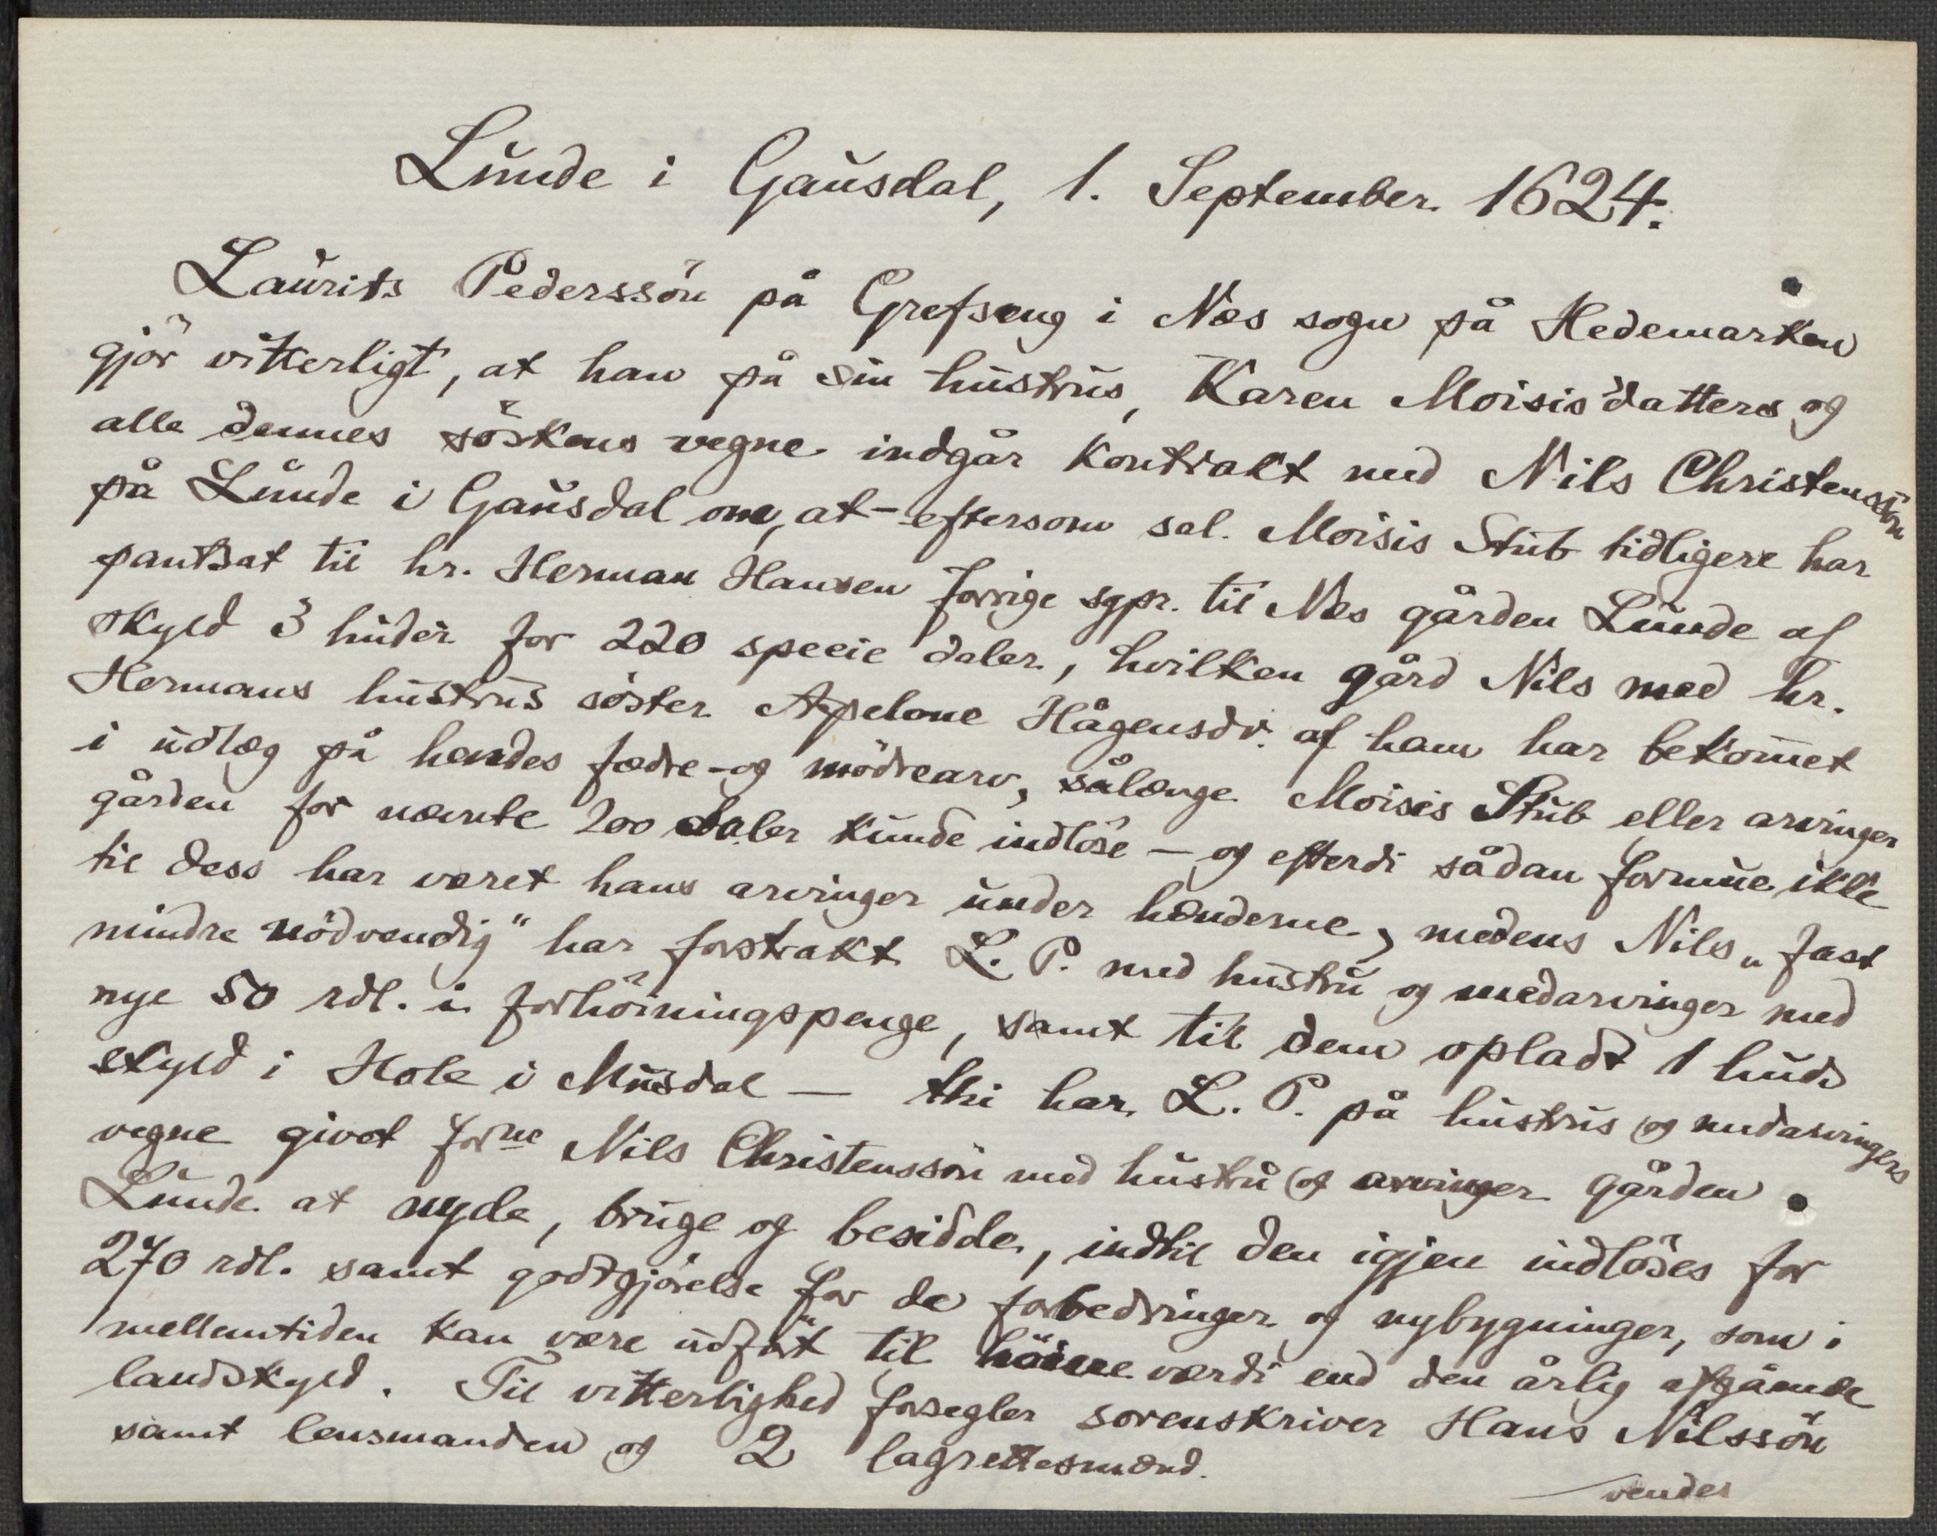 Lunde i Gausdal, 1. September 1624.
Laurits Pederssön på Grefseng i Næs sogn på Hedemarken
gjör vitterligt, at han på sin hustrus, Karen Moisisdatters og
alle dennes söskens vegne indgår kontrakt med Nils Christenssön
på Lunde i Gausdal om, at - eftersom sal. Moisis Stub tidligere har
pantsat til hr. Herman Hansen forrige sgpr. til Næs gården Lunde af
skyld 3 huder for 220 specie daler, hvilken gård Nils med hr.
Hermans hustrus söster Apelone Hågensdr. af ham har bekommet
i udlæg på hendes fædre- og mödrearv, sålænge Moisis Stub eller arvinger
gården for nævnte 200 daler kunde indlöse - og efterdi sådan formue ikke
til dess har været hans arvinger under hænderne, medens Nils „fast
mindre nödvendig" har forstrakt L. P. med hustru og medarvinger med
nye 50 rdl. i forhöiningspenge, samt til dem opladt 1 huds
skyld i Hole i Musdal - thi har L. P. på hustrus og medarvingers
vegne givet forne Nils Christenssön med hustru og arvinger gården
Lunde at nyde, bruge og besidde, indtil den igjen indlöses for
270 rdl. samt godtgjörelse for de forbedringer og nybygninger, som i
mellemtiden kan være udfört til höiere værdi end den årlig afgående
landskyld. Til vitterlighed forsegler sorenskriver Hans Nilssön
samt lensmanden og 2 lagrettesmænd.
vendes